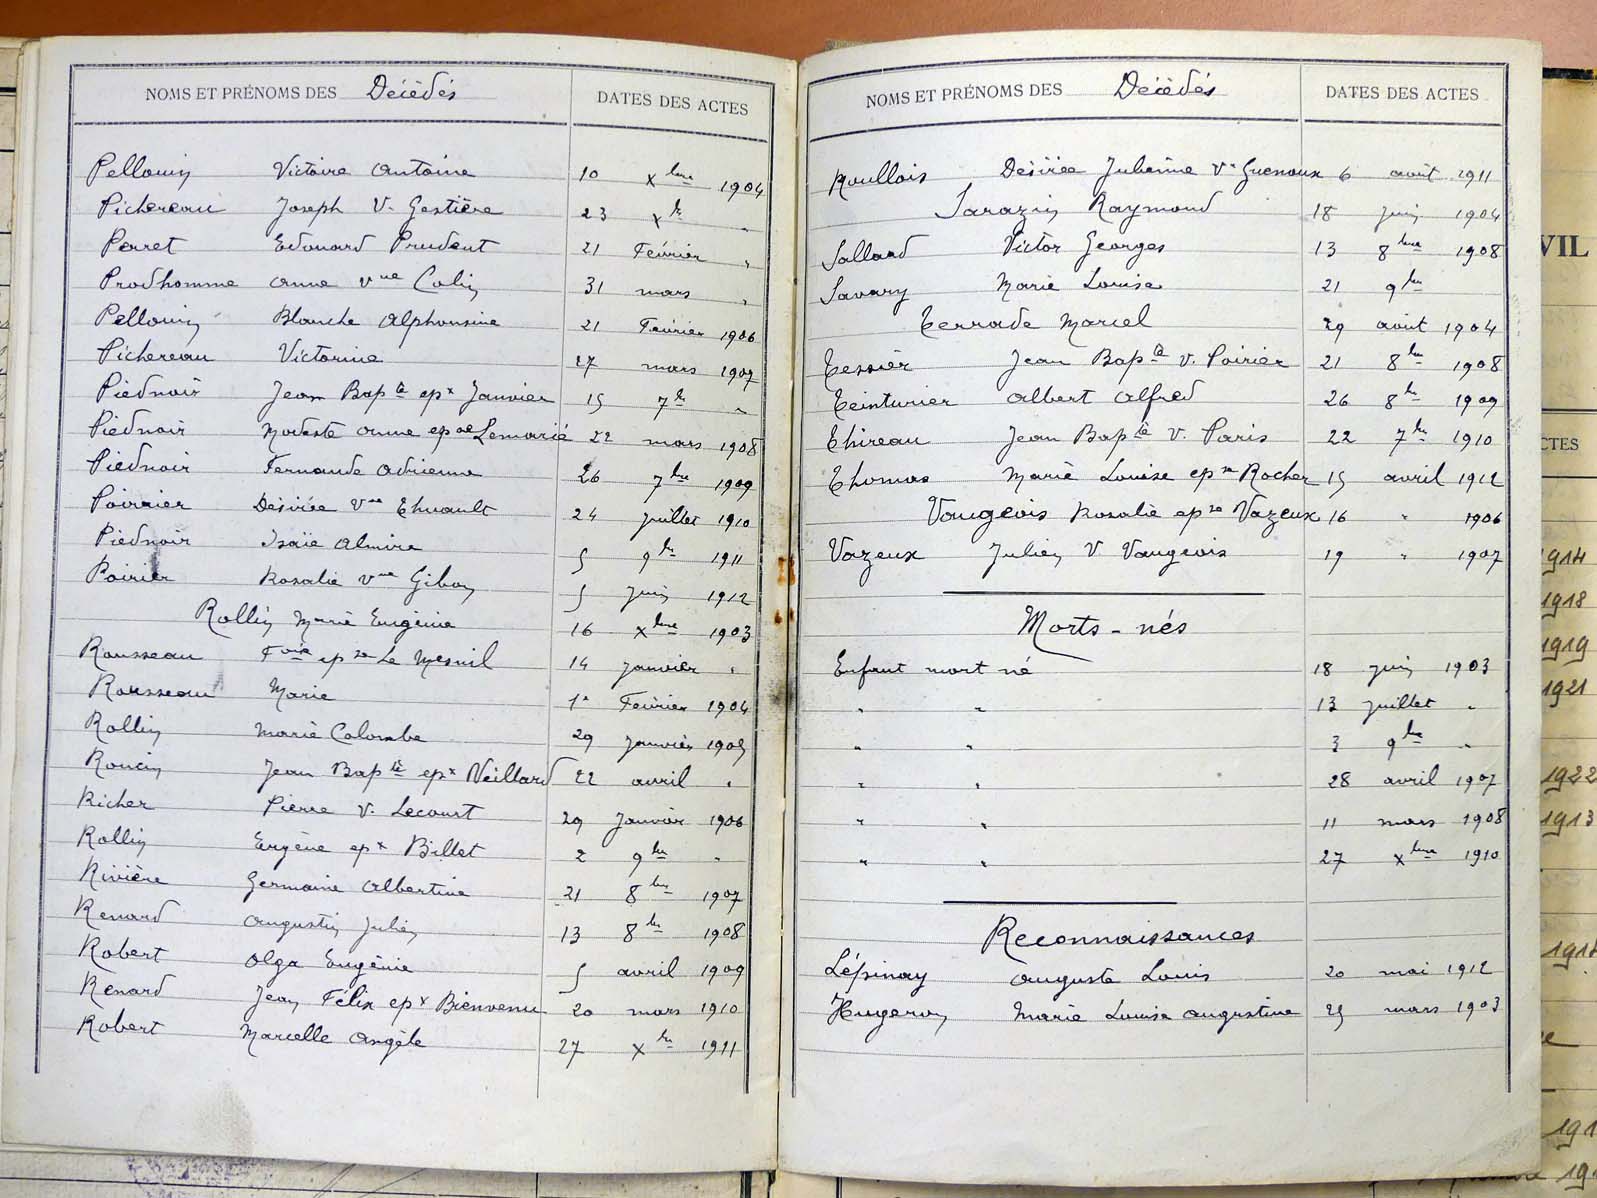 NOMS ET PRÉNOMS DES Décédés DATES DES ACTES
Pellouin Victoire Antoine 10 Xbre 1904
Pichereau Joseph V. Gestière 23 Xbr "
Perret Edouard Prudent 21 Février "
Prodhomme Anne Vve Colin 31 mars "
Pellouin Blanche Alphonsine 21 Février 1906
Pichereau Victorine 27 mars 1907
Piednoir Jean Bapte epx Janvier 15 7br "
Piednoir Modeste Anne epse Lemarié 22 mars 1908
Piednoir Fernande Adrienne 26 7bre 1909
Poirrier Désirée Vve Chuault 24 juillet 1910
Piednoir Isaïe Almire 5 9br 1911
Poirier Rosalie Vve Gibon 5 juin 1912
Rollin Marie Eugénie 16 Xbre 1903
Rousseau Foise epse Le Mesnil 14 janvier "
Rousseau Marie 1er Février 1904
Rollin Marie Colombe 29 janvier 1905
Roncin Jean Bapte epx Veillard 22 avril "
Richer Pierre V. Lecourt 29 Janvier 1906
Rollin Eugène epx Billet 2 9br "
Rivière Germaine Albertine 21 8br 1907
Renard Augustin Julien 13 8br 1908
Robert Olga Eugénie 5 avril 1909
Renard Jean Félix epx Bienvenu 20 mars 1910
Robert Marcelle Angèle 27 Xbr 1911
NOMS ET PRÉNOMS DES Décédés DATES DES ACTES
Roullois Désirée Julienne Ve Guenoux 6 août 1911
Sarazin Raymond 18 juin 1904
Sallard Victor Georges 13 8bre 1908
Savary Marie Louise 21 9br
Terrade Marcel 29 août 1904
Tessier Jean Bapte V. Poirier 21 8br 1908
Teinturier Albert Alfred 26 8br 1909
Thireau Jean Bapte V. Paris 22 7br 1910
Thomas Marie Louise epse Rocher 15 avril 1912
Vaugeois Rosalie epse Vazeux 16 " 1906
Vazeux Julien V Vaugeois 19 " 1907
Morts-nés
Enfant mort né 18 juin 1903
" " 13 juillet "
" " 3 9bre "
" " 28 avril 1907
" " 11 mars 1908
" " 27 Xbre 1910
Reconnaissances
Lépinay Auguste Louis 20 mai 1912
Hugeron Marie Louise Augustine 25 mars 1903
VIL
CTES
1914
1918
1919
1921
1922
1913